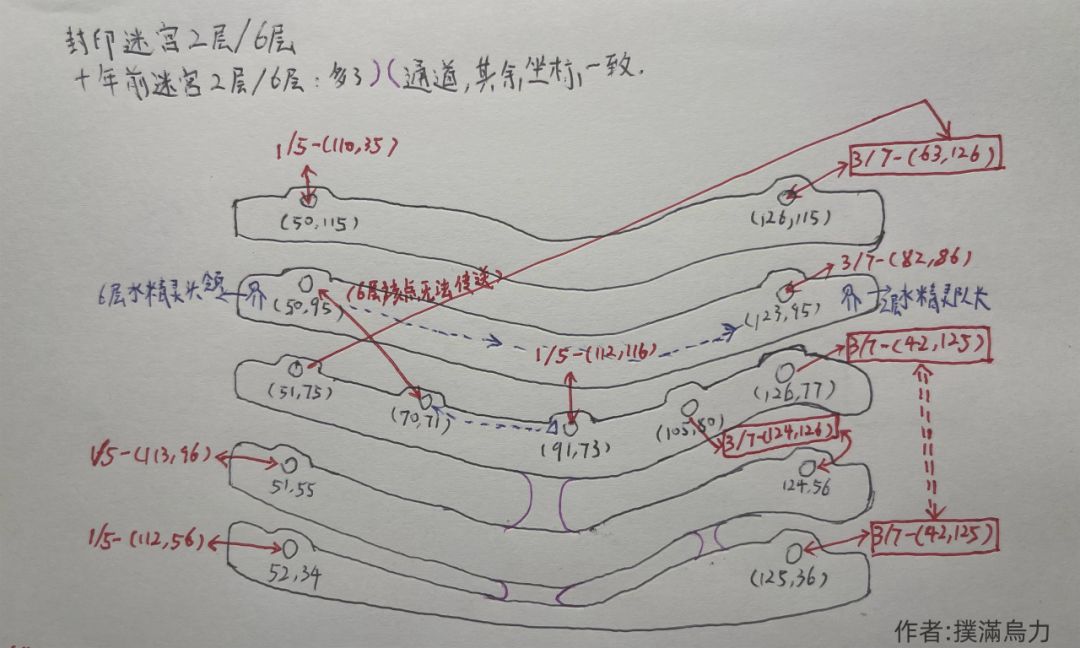 封印迷宫2层/6层
十年前迷宫2层/6层:多了)(通道,其余坐标一致.
1/5-(110,35)
3/7-(63,126)
(50,115)
(126,115)
3/7-(82,86)
6层水精灵头领
界
(50,95)
(6层该点无法传送)
(123,95)
界
2层水精灵队长
1/5-(112,116)
3/7-(42,125)
(51,75)
(70,71)
(91,73)
(105,80)
(126,77)
3/7-(124,126)
1/5-(113,96)
51,55
124,56
1/5-(112,56)
52,34
(125,36)
3/7-(42,125)
作者:撲滿烏力